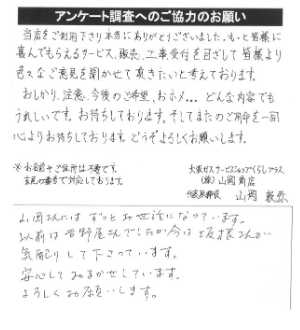 アンケート調査へのご協力のお願い
当店をご利用下さり本当にありがとうございました。もっと皆様に
喜んでもらえるサービス、販売、工事受付を目ざして皆様より
色々なご意見を聞かせて頂きたいと考えております。
おしかり、注意、今後のご希望、おホメ…どんな内容でも
うれしいです。お待ちしております。そしてまたのご用命を一同
心よりお待ちしております。どうぞよろしくお願いします。
※お名前やご住所は不要です。
大阪ガスサービスショップくらしプラス
(株)山岡商店
代表取締役 山岡
山岡さんにはずっとお世話になっています。
以前は
さんでしたが今は坂根さんが
気配りして下さっています。
安心しておまかせしています。
よろしくお願いします。